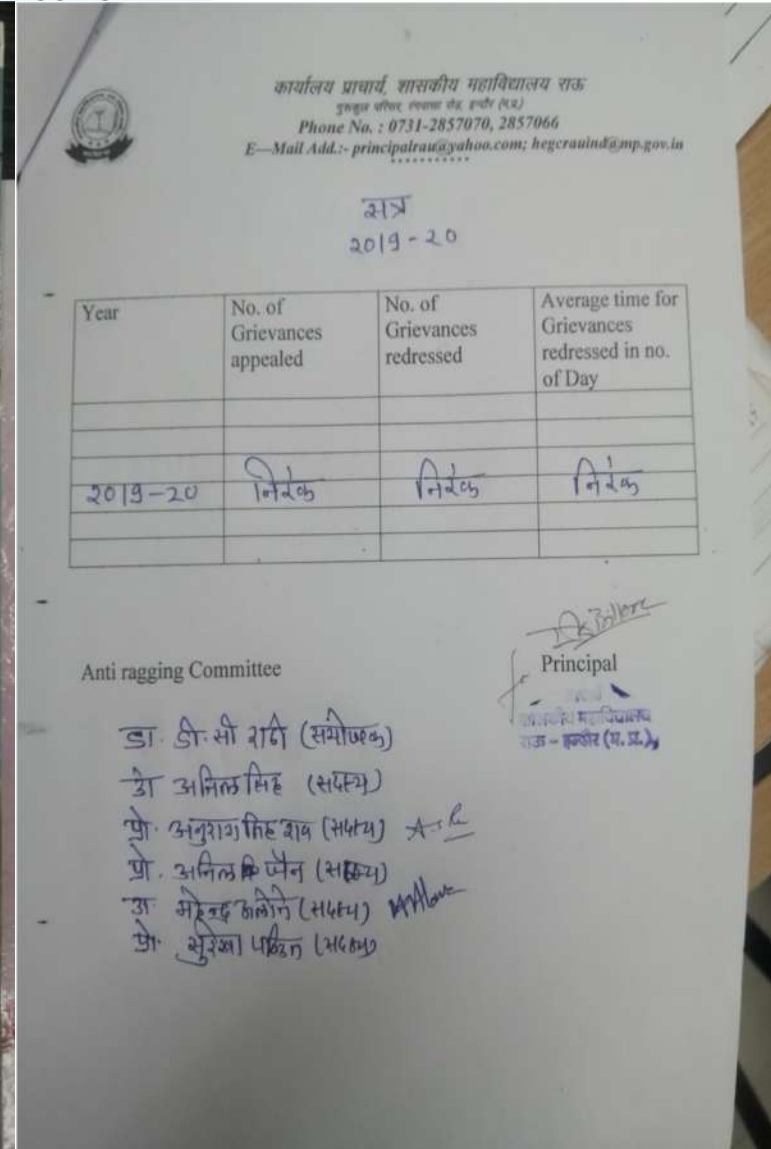 कार्यालय प्राचार्य, शासकीय महाविद्यालय राऊ
गुरुकुल परिसर, रंगवासा रोड, इन्दौर (म.प्र.)
Phone No. : 0731-2857070, 2857066
E—Mail Add.:- principalrau@yahoo.com; hegcrauind@mp.gov.in
***********
सत्र
2019-20
Year No. of Grievances appealed No. of Grievances redressed Average time for Grievances redressed in no. of Day
2019-20 निरंक निरंक निरंक
Anti ragging Committee
for Principal
शासकीय महाविद्यालय
राऊ - इन्दौर (म. प्र.)
डा. डी. सी राठी (संयोजक)
डा अनिल सिंह (सदस्य)
प्रो. अनुराग सिंह राव (सदस्य)
प्रो. अनिल जैन (सदस्य)
डा महेन्द्र अलोने (सदस्य)
प्रो. सुरेखा (सदस्य)